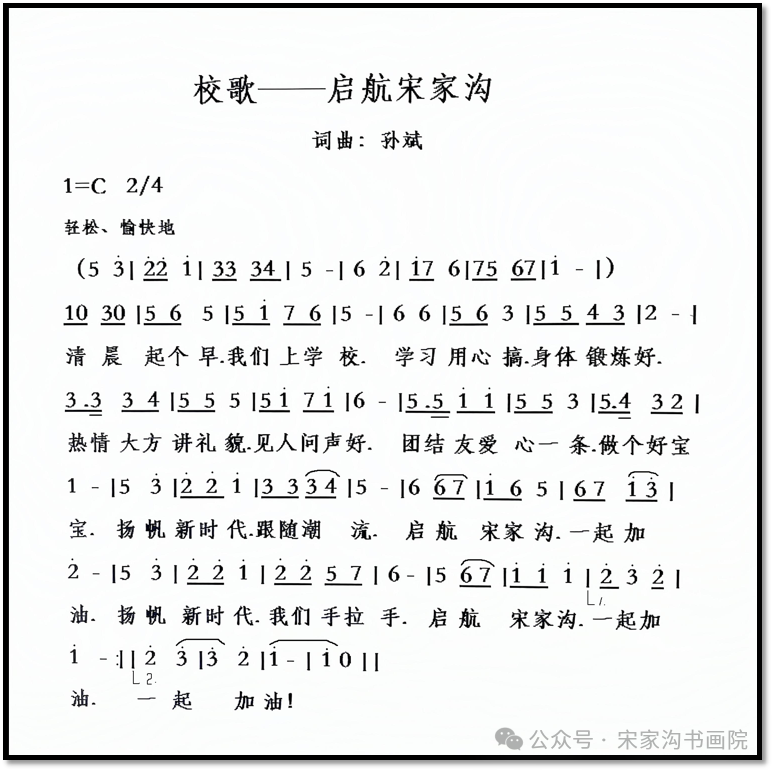 校歌——启航宋家沟
词曲：孙斌
1=C 2/4
轻松、愉快地
（5 3̇ | 2̇2̇ 1̇ | 33 34 | 5 - | 6 2̇ | 1̇7 6 | 75 67 | 1̇ - |）
10 30 | 5 6 5 | 5 1̇ 7 6 | 5 - | 6 6 | 5 6 3 | 5 5 4 3 | 2 - |
清 晨 起个 早.我们 上学 校. 学习 用心 搞.身体 锻炼好.
3.3 3 4 | 5 5 5 | 5 1̇ 7 1̇ | 6 - | 5.5 1̇ 1̇ | 5 5 3 | 5.4 3 2 |
热情 大方 讲礼 貌.见人问声好. 团结 友爱 心一 条.做个好宝
1 - | 5 3̇ | 2̇ 2̇ 1̇ | 3 3 3 4 | 5 - | 6 6 7 | 1̇ 6 5 | 6 7 1̇ 3̇ |
宝. 扬 帆 新时 代.跟随潮 流. 启 航 宋家 沟.一起 加
2̇ - | 5 3̇ | 2̇ 2̇ 1̇ | 2̇ 2̇ 5 7 | 6 - | 5 6 7 | 1̇ 1̇ 1̇ | 2̇ 3̇ 2̇ |
1.
油. 扬 帆 新时 代.我们 手拉 手. 启 航 宋家沟.一起加
1̇ - :|| 2̇ 3̇ | 3̇ 2̇ | 1̇ - | 1̇ 0 ||
2.
油. 一 起 加 油！
公众号·宋家沟书画院